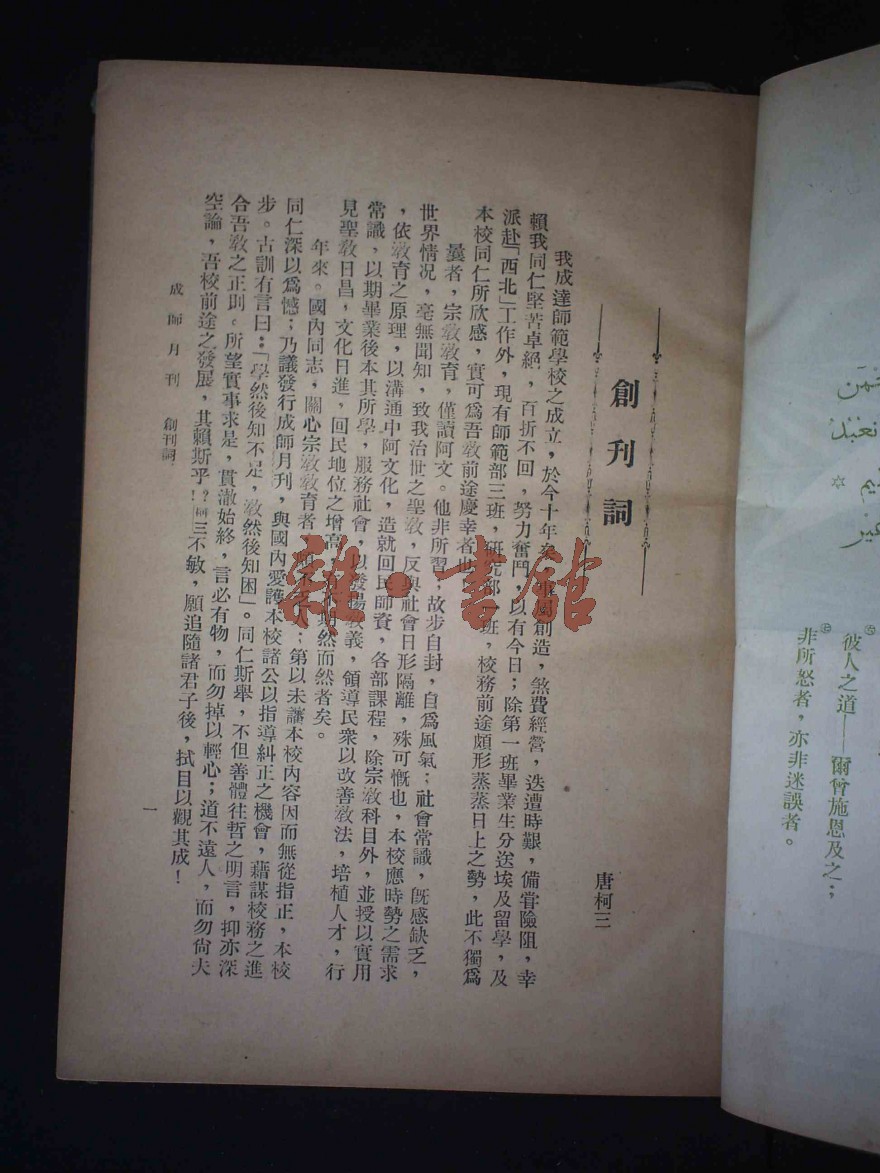 نعبد
彼人之道——爾曾施恩及之；
非所怒者，亦非迷誤者。
創刊詞
唐柯三
我成達師範學校之成立，於今十年矣，創造，煞費經營，迭遭時艱，備嘗險阻，幸
賴我同仁堅苦卓絕，百折不回，努力奮鬥，以有今日；除第一班畢業生分送埃及留學，及
派赴「西北」工作外，現有師範部三班，研究部一班，校務前途頗形蒸蒸日上之勢，此不獨爲
本校同仁所欣感，實可爲吾教前途慶幸者也。
曩者，宗教教育，僅讀阿文。他非所習；故步自封，自爲風氣；社會常識，旣感缺乏，
世界情况，毫無聞知，致我治世之聖教，反與社會日形隔離，殊可慨也，本校應時勢之需求
，依教育之原理，以溝通中阿文化，造就回民師資，各部課程，除宗教科目外，並授以實用
常識，以期畢業後本其所學，服務社會，以發揚教義，領導民衆以改善教法，培植人才，行
見聖教日昌，文化日進，回民地位之增高，不期然而然者矣。
年來。國內同志，關心宗教教育者，人；第以未讅本校內容因而無從指正，本校
同仁深以爲憾；乃議發行成師月刋，與國內愛護本校諸公以指導糾正之機會，藉謀校務之進
步。古訓有言曰：「學然後知不足，教然後知困」。同仁斯舉，不但善體往哲之明言，抑亦深
合吾教之正則。所望實事求是，貫澈始終，言必有物，而勿掉以輕心；道不遠人，而勿尙夫
空論，吾校前途之發展，其賴斯乎？！柯三不敏，願追隨諸君子後，拭目以觀其成！
成師月刊 創刊詞
一
雜·書館